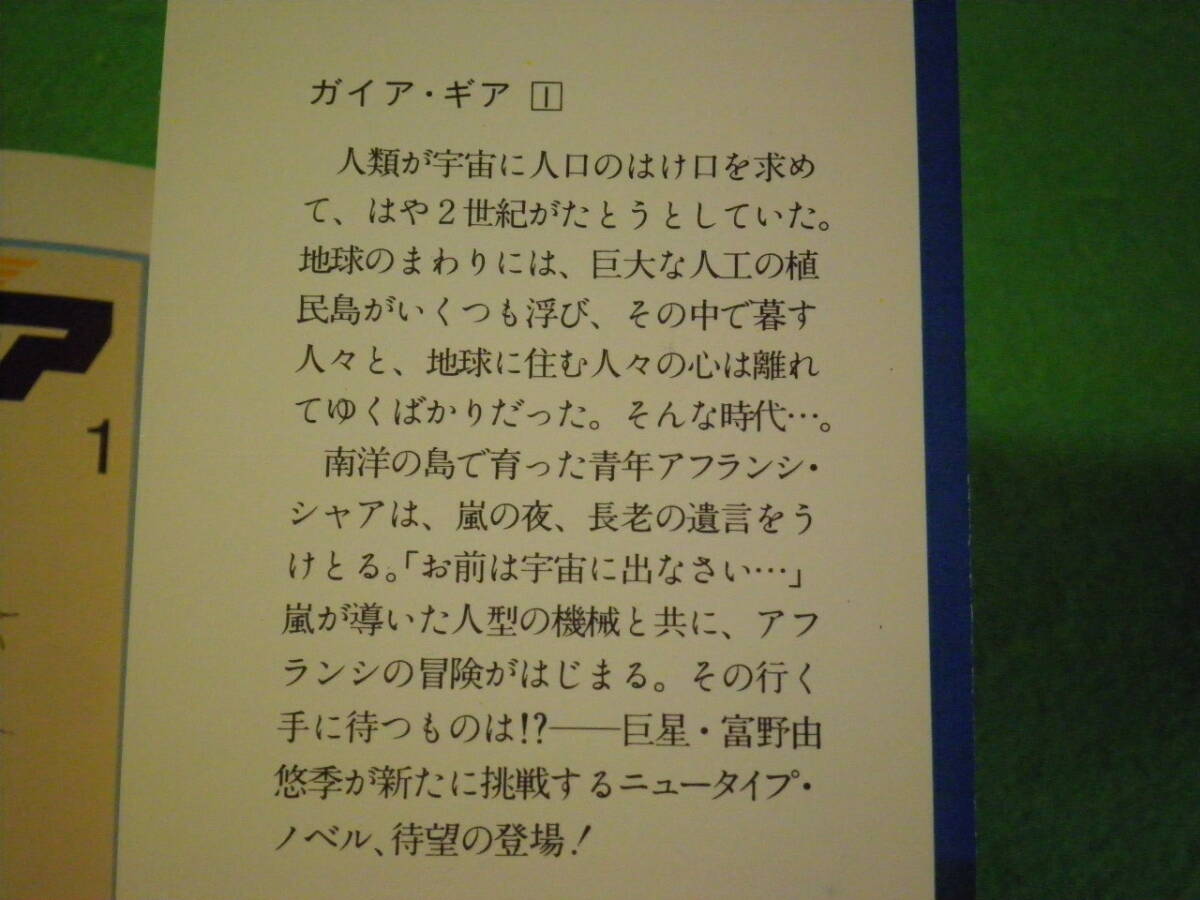 ガイア・ギア 1
人類が宇宙に人口のはけ口を求め
て、はや2世紀がたとうとしていた。
地球のまわりには、巨大な人工の植
民島がいくつも浮び、その中で暮す
人々と、地球に住む人々の心は離れ
てゆくばかりだった。そんな時代…。
南洋の島で育った青年アフランシ・
シャアは、嵐の夜、長老の遺言をう
けとる。「お前は宇宙に出なさい…」
嵐が導いた人型の機械と共に、アフ
ランシの冒険がはじまる。その行く
手に待つものは!?――巨星・富野由
悠季が新たに挑戦するニュータイプ・
ノベル、待望の登場!
ア
1